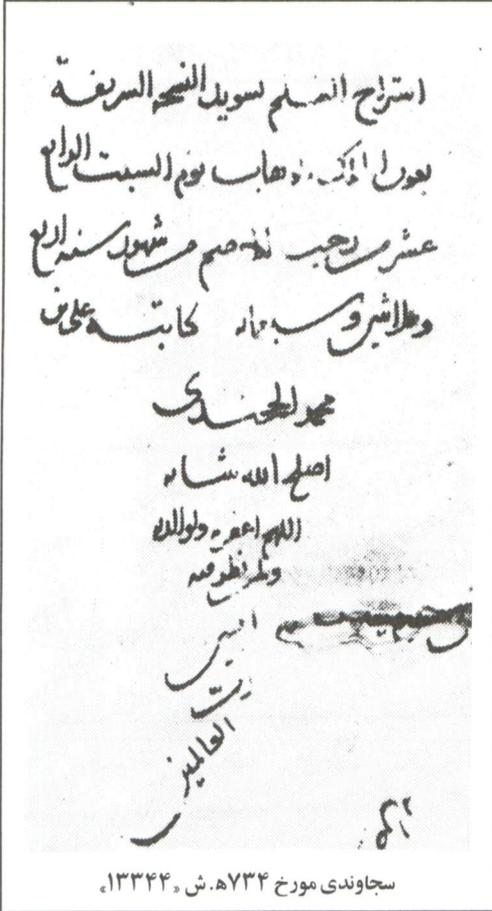 استراح القلم لسويد النسخه الشريفة
بعون الملك الوهاب يوم السبت الرابع
عشر من رجب الاصم من شهور سنه اربع
وثلاثين وسبعمائه كاتبه على بن
محمد الخجندى
اصلح الله شانه
اللهم اغفر له ولوالديه
ولمن نظر فيه
امين
رب
العالمين
سجاوندی مورخ ۷۳۴ه.ش «۱۳۳۴۴»